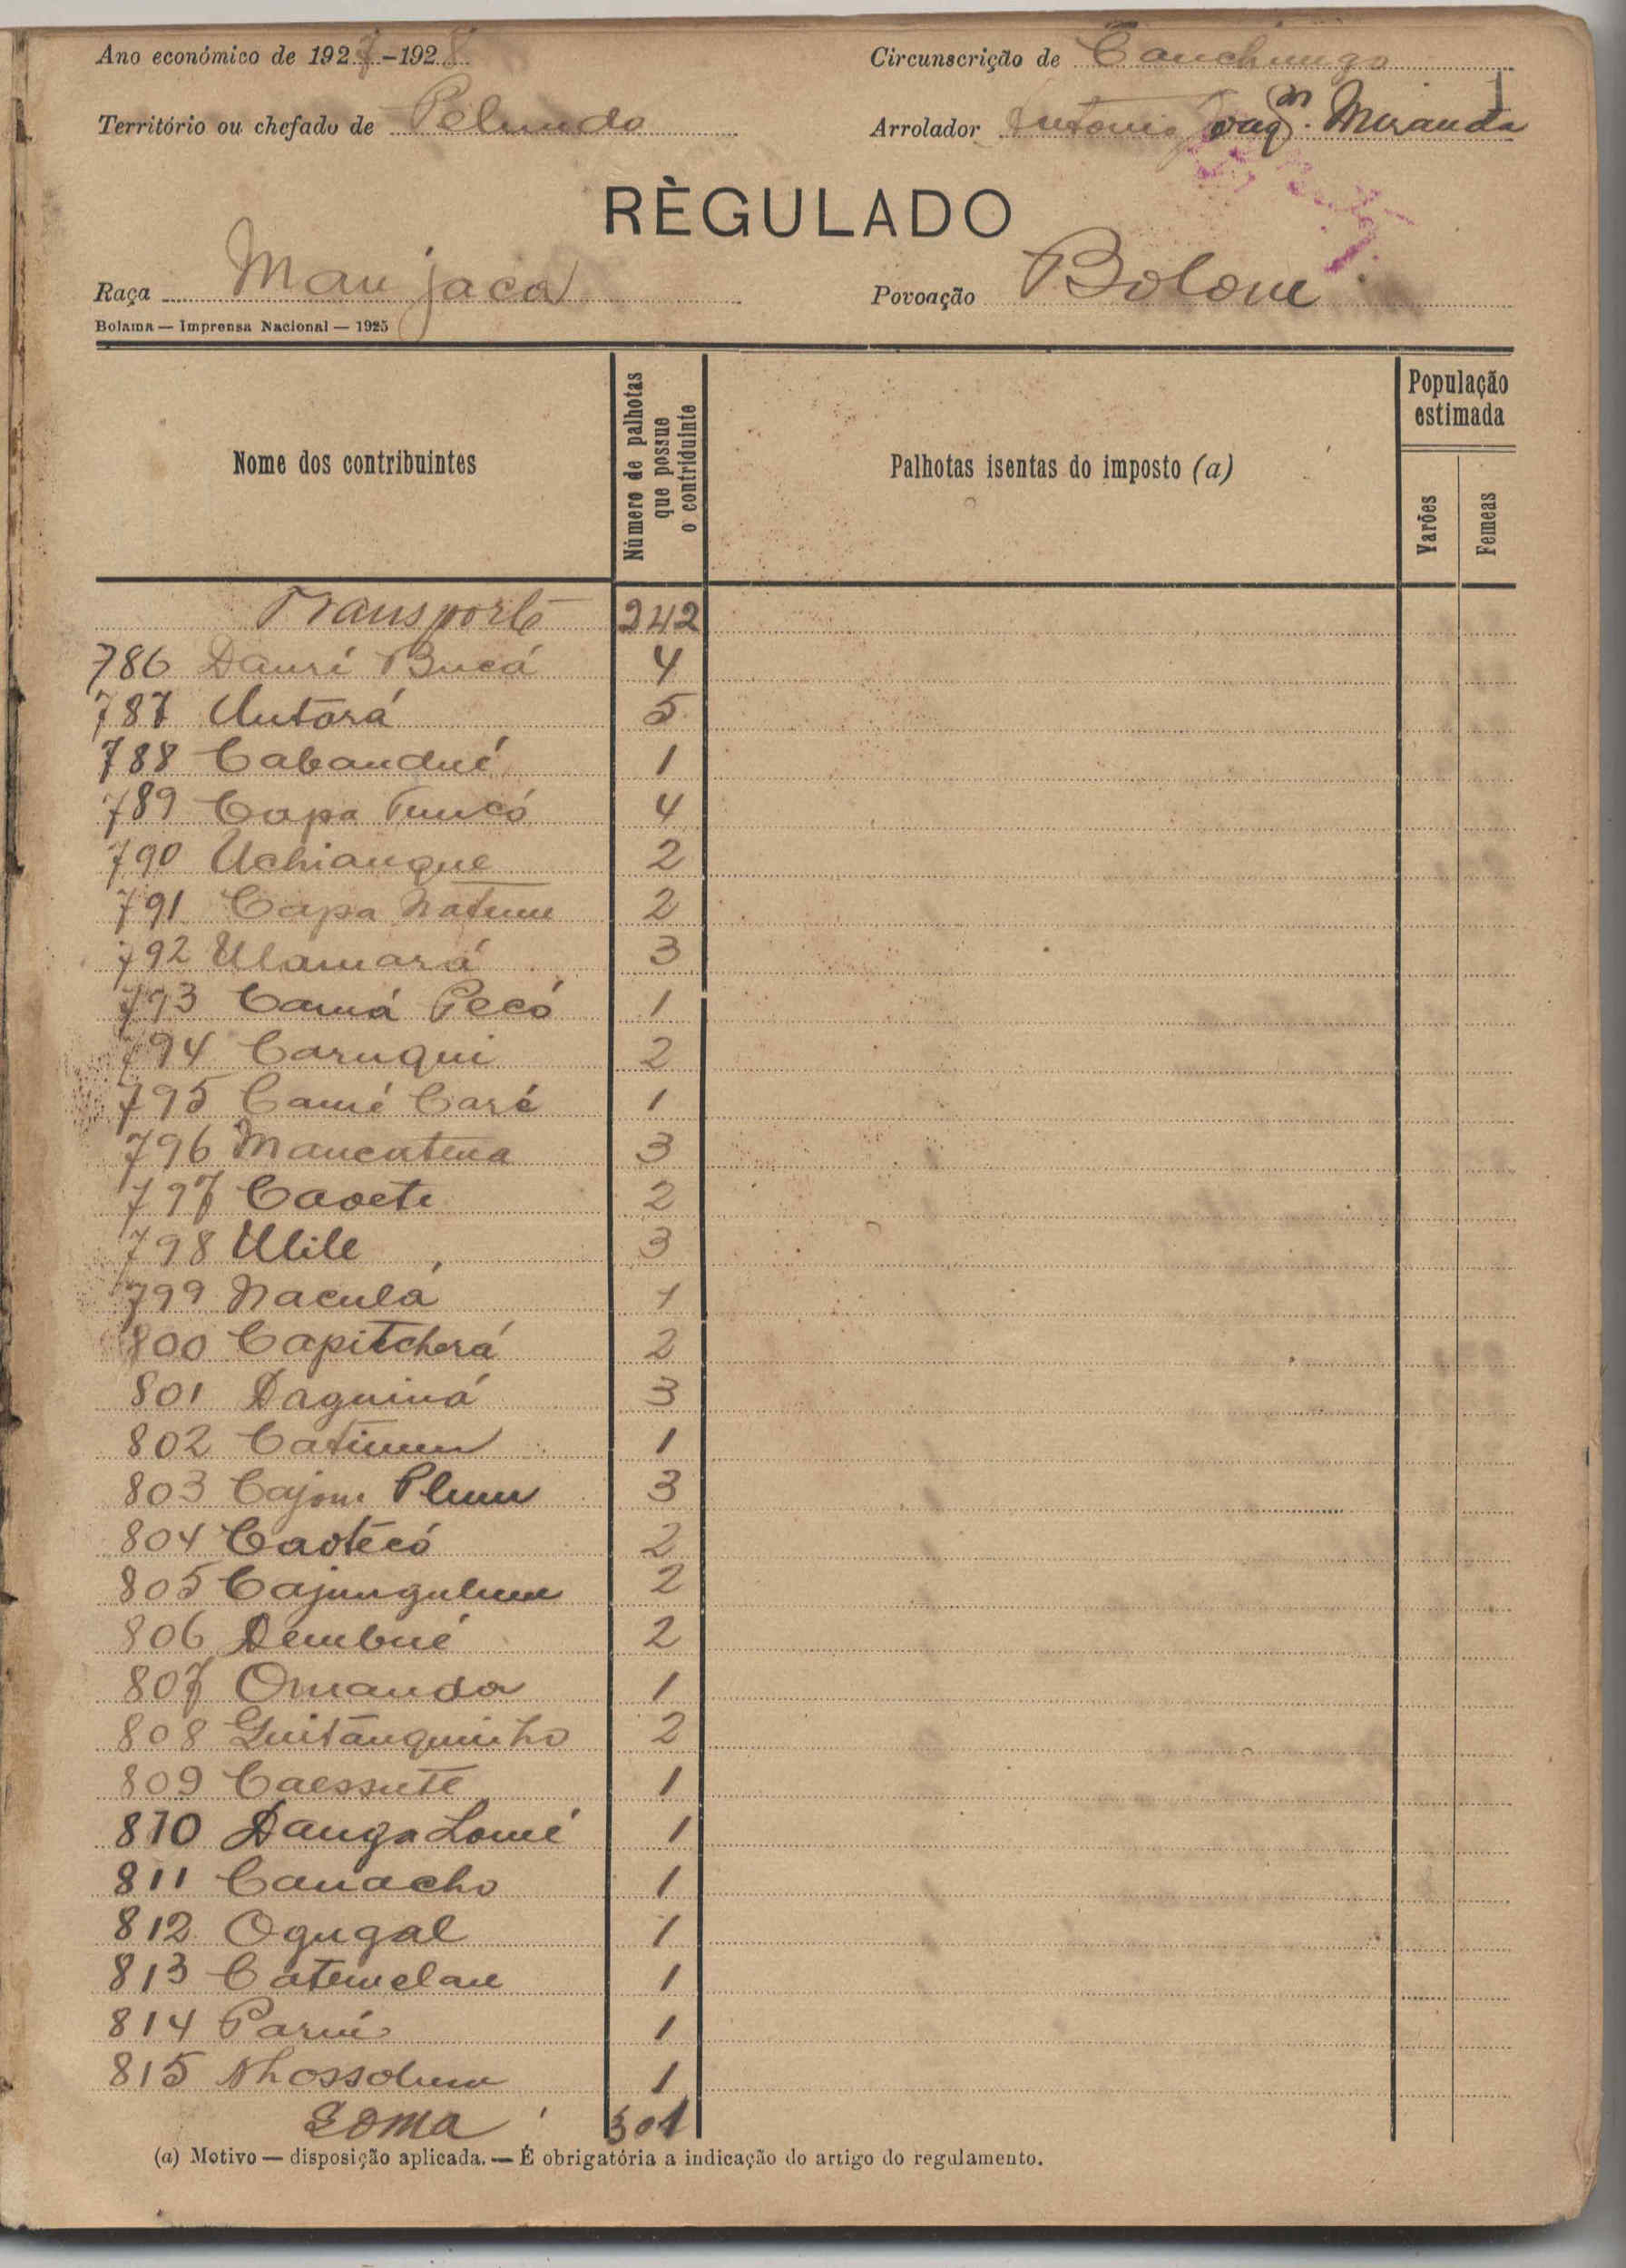 Ano económico de 1927-1928
Circunscrição de Canchungo
Território ou chefado de Pelundo
Arrolador Antonio Joaqm. Miranda
RÈGULADO
Raça Manjaca
Povoação Bolone
Bolama — Imprensa Nacional — 1925
Nome dos contribuintes
Número de palhotas
que possue
o contriduinte
Palhotas isentas do imposto (a)
População
estimada
Varões
Femeas
Transporte 242
786 Dauri Bucá 4
787 Untorá 5
788 Cabandué 1
789 Capa Tuncó 4
790 Uchiangue 2
791 Capa Natum 2
792 Ulamará 3
793 Camá Pecó 1
794 Caruqui 2
795 Camé Caré 1
796 Mancatena 3
797 Caoete 2
798 Ulile 3
799 Naculá 1
800 Capitcherá 2
801 Daguiná 3
802 Catimum 1
803 Cajom Plum 3
804 Caotécó 2
805 Cajungulum 2
806 Dembué 2
807 Omanda 1
808 Guitanguinho 2
809 Caessute 1
810 Danga Lomé 1
811 Canacho 1
812 Ogugal 1
813 Catemelan 1
814 Parui 1
815 Nhossolum 1
Soma 301
(a) Motivo — disposição aplicada. — É obrigatória a indicação do artigo do regulamento.